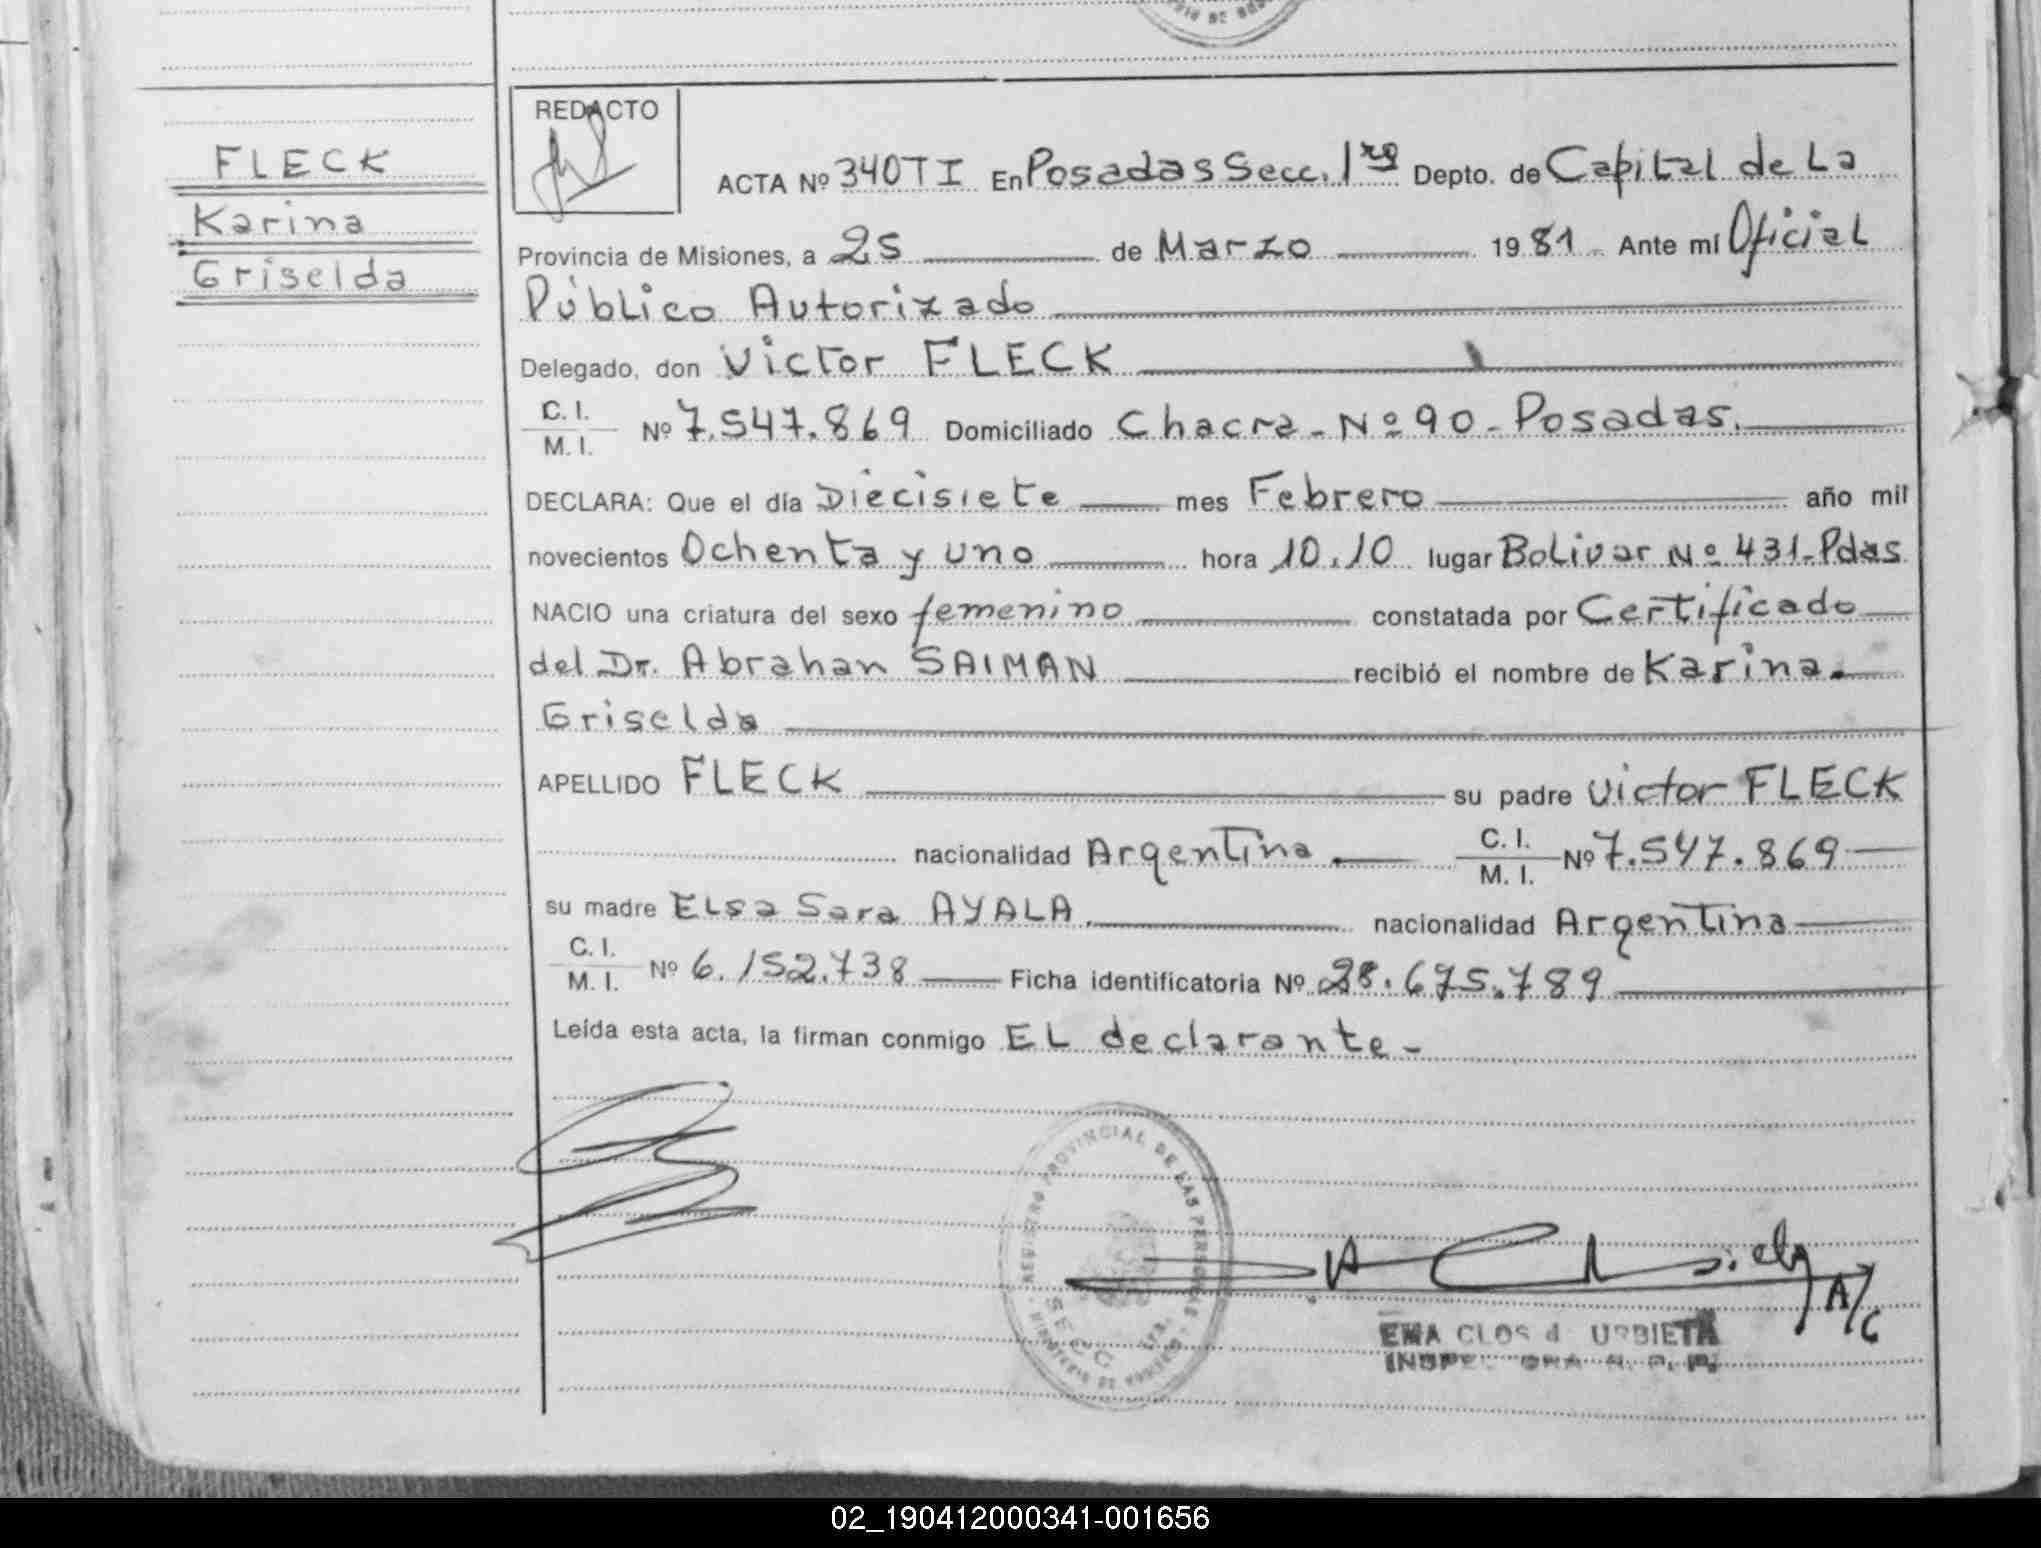 FLECK
Karina
Griselda
REDACTO
ACTA Nº 340TI En Posadas Secc. 1ra Depto. de Capital de La
Provincia de Misiones, a 25 de Marzo 1981. Ante mí Oficial
Público Autorizado
Delegado, don Victor FLECK
C. I.
M. I. Nº 7.547.869 Domiciliado Chacra-Nº 90-Posadas.
DECLARA: Que el día Diecisiete mes Febrero año mil
novecientos Ochenta y uno hora 10,10 lugar Bolivar Nº 431-Pdas
NACIO una criatura del sexo femenino constatada por Certificado
del Dr. Abrahan SAIMAN recibió el nombre de Karina
Griselda
APELLIDO FLECK su padre Victor FLECK
nacionalidad Argentina. C. I.
M. I. Nº 7.547.869
su madre Elsa Sara AYALA. nacionalidad Argentina
C. I.
M. I. Nº 6.152.738 Ficha identificatoria Nº 28.675.789
Leída esta acta, la firman conmigo EL declarante-
REGISTRO PROVINCIAL DE LAS PERSONAS
SECC. 1ra.
A/C
EMA CLOS d URBIETA
INSPECTORA R. P. P.
02_190412000341-001656